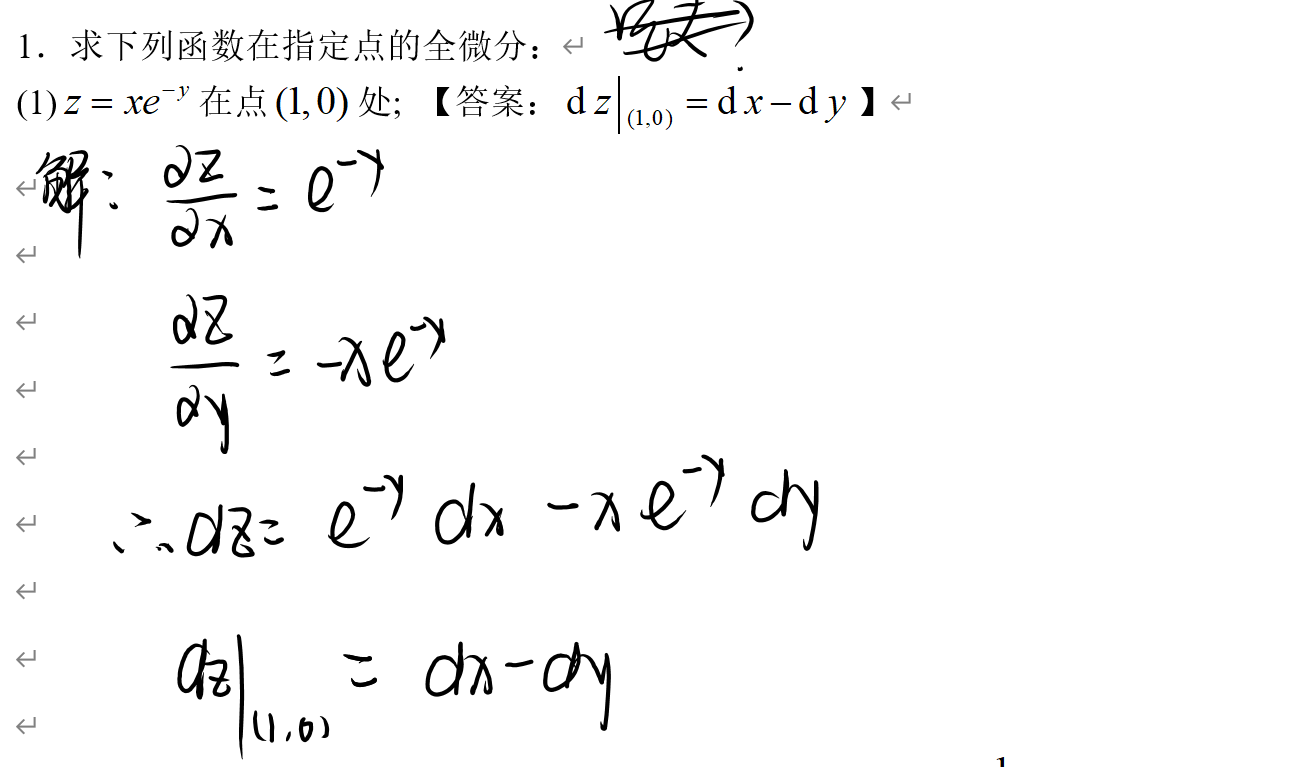 1. 求下列函数在指定点的全微分：
(1) z = xe^{-y} 在点 (1,0) 处; 【答案： dz|_{(1,0)} = dx - dy 】
解： ∂z/∂x = e^{-y}
∂z/∂y = -xe^{-y}
∴ dz = e^{-y} dx - xe^{-y} dy
dz|_{(1,0)} = dx - dy
1